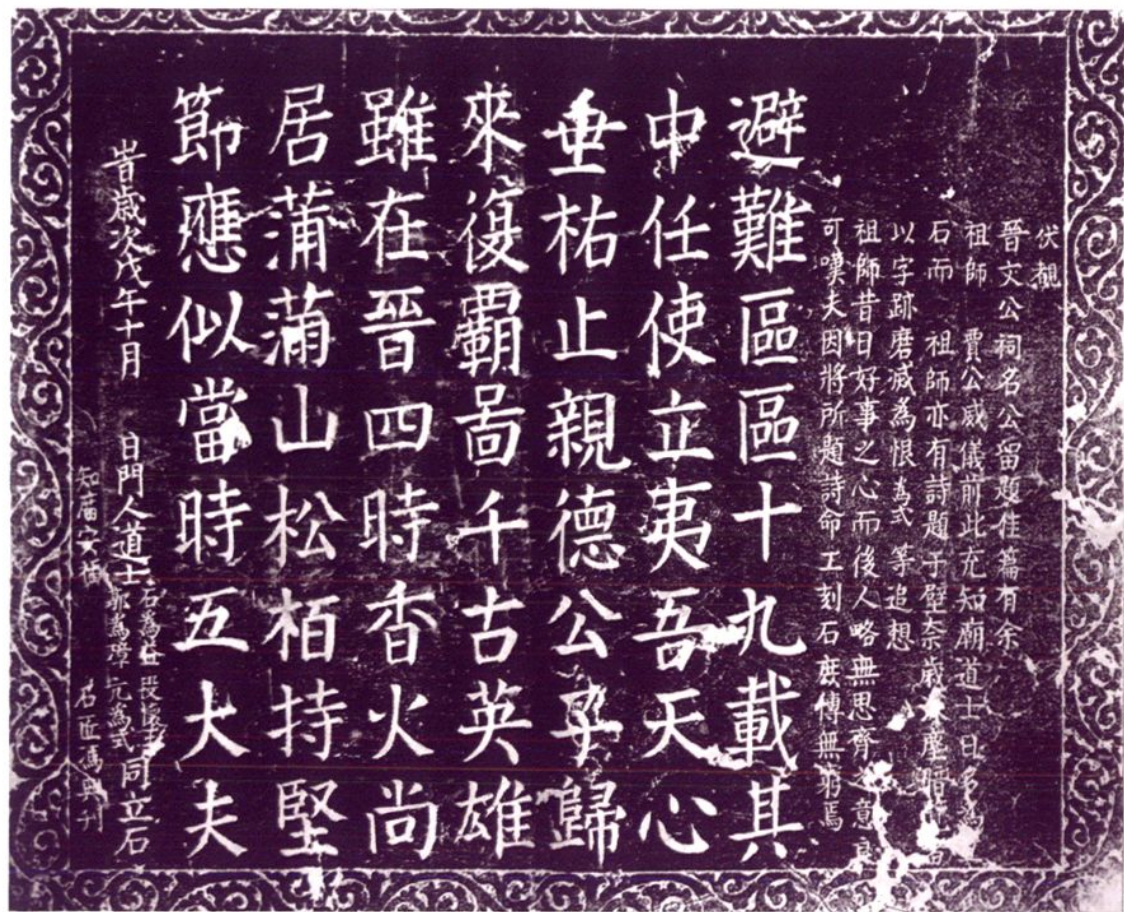 伏觀
晉文公祠名公留題佳篇有余
祖師 賈公威儀前此充知廟道士日多為
石而 祖師亦有詩題于壁奈歲
以字跡磨滅為恨為式 等追想
祖師昔日好事之心而後人略無思齊 意良
可嘆夫因將所題詩命工刻石庶傳無窮焉
避難區區十九載其
中任使立夷吾天心
垂祐止親德公子歸
來復霸啚千古英雄
雖在晉四時香火尚
居蒲蒲山松栢持堅
節應似當時五大夫
旹歲次戊午十月 日門人道士 石為 郭為璋 元為式 同立石
知庿安 石匠馮興刊